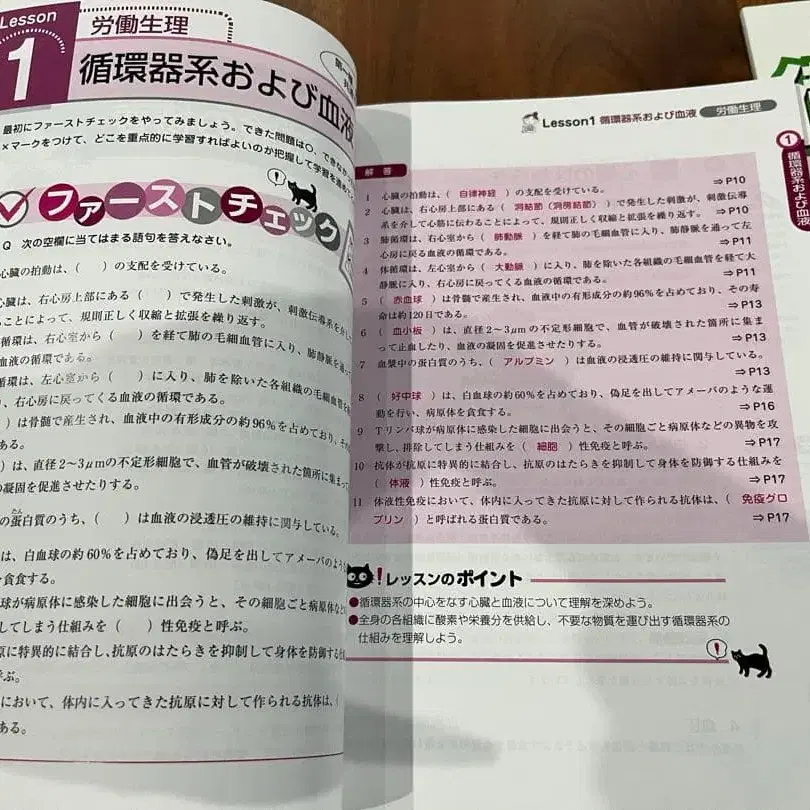 Lesson
1
労働生理
循環器系および血液
最初にファーストチェックをやってみましょう。できた問題は○、できなかっ
×マークをつけて、どこを重点的に学習すればよいのか把握して学習を進め
ファーストチェック
Q 次の空欄に当てはまる語句を答えなさい。
心臓の拍動は、( )の支配を受けている。
心臓は、右心房上部にある( )で発生した刺激が、刺激伝導系を介し
ことによって、規則正しく収縮と拡張を繰り返す。
循環は、右心室から( )を経て肺の毛細血管に入り、肺静脈を通って
血液の循環である。
循環は、左心室から( )に入り、肺を除いた各組織の毛細血管を
、右心房に戻ってくる血液の循環である。
)は骨髄で産生され、血液中の有形成分の約96%を占めており、その
ある。
)は、直径2〜3μmの不定形細胞で、血管が破壊された箇所に集まっ
の凝固を促進させたりする。
の蛋白質のうち、( )は血液の浸透圧の維持に関与している。
たん
は、白血球の約60%を占めており、偽足を出してアメーバのような
を貪食する。
球が病原体に感染した細胞に出会うと、その細胞ごと病原体など
してしまう仕組みを( )性免疫と呼ぶ。
原に特異的に結合し、抗原のはたらきを抑制して身体を防御する仕
呼ぶ。
において、体内に入ってきた抗原に対して作られる抗体は、(
ある。
Lesson1 循環器系および血液 労働生理
1
循環器系および血液
解答
1 心臓の拍動は、( 自律神経 )の支配を受けている。 ⇒P10
2 心臓は、右心房上部にある( 洞結節(洞房結節) )で発生した刺激が、刺激伝導
系を介して心筋に伝わることによって、規則正しく収縮と拡張を繰り返す。 ⇒P10
3 肺循環は、右心室から( 肺動脈 )を経て肺の毛細血管に入り、肺静脈を通って左
心房に戻る血液の循環である。 ⇒P11
4 体循環は、左心室から( 大動脈 )に入り、肺を除いた各組織の毛細血管を経て大
静脈に入り、右心房に戻ってくる血液の循環である。 ⇒P11
5 ( 赤血球 )は骨髄で産生され、血液中の有形成分の約96%を占めており、その寿
命は約120日である。 ⇒P13
6 ( 血小板 )は、直径2〜3μmの不定形細胞で、血管が破壊された箇所に集ま
って止血したり、血液の凝固を促進させたりする。 ⇒P13
7 血漿中の蛋白質のうち、( アルブミン )は血液の浸透圧の維持に関与している。
⇒P13
8 ( 好中球 )は、白血球の約60%を占めており、偽足を出してアメーバのような運
動を行い、病原体を貪食する。 ⇒P16
9 Tリンパ球が病原体に感染した細胞に出会うと、その細胞ごと病原体などの異物を攻
撃し、排除してしまう仕組みを( 細胞 )性免疫と呼ぶ。 ⇒P17
10 抗体が抗原に特異的に結合し、抗原のはたらきを抑制して身体を防御する仕組みを
( 体液 )性免疫と呼ぶ。 ⇒P17
11 体液性免疫において、体内に入ってきた抗原に対して作られる抗体は、( 免疫グロ
ブリン )と呼ばれる蛋白質である。 ⇒P17
!レッスンのポイント
●循環器系の中心をなす心臓と血液について理解を深めよう。
●全身の各組織に酸素や栄養分を供給し、不要な物質を運び出す循環器系の
仕組みを理解しよう。